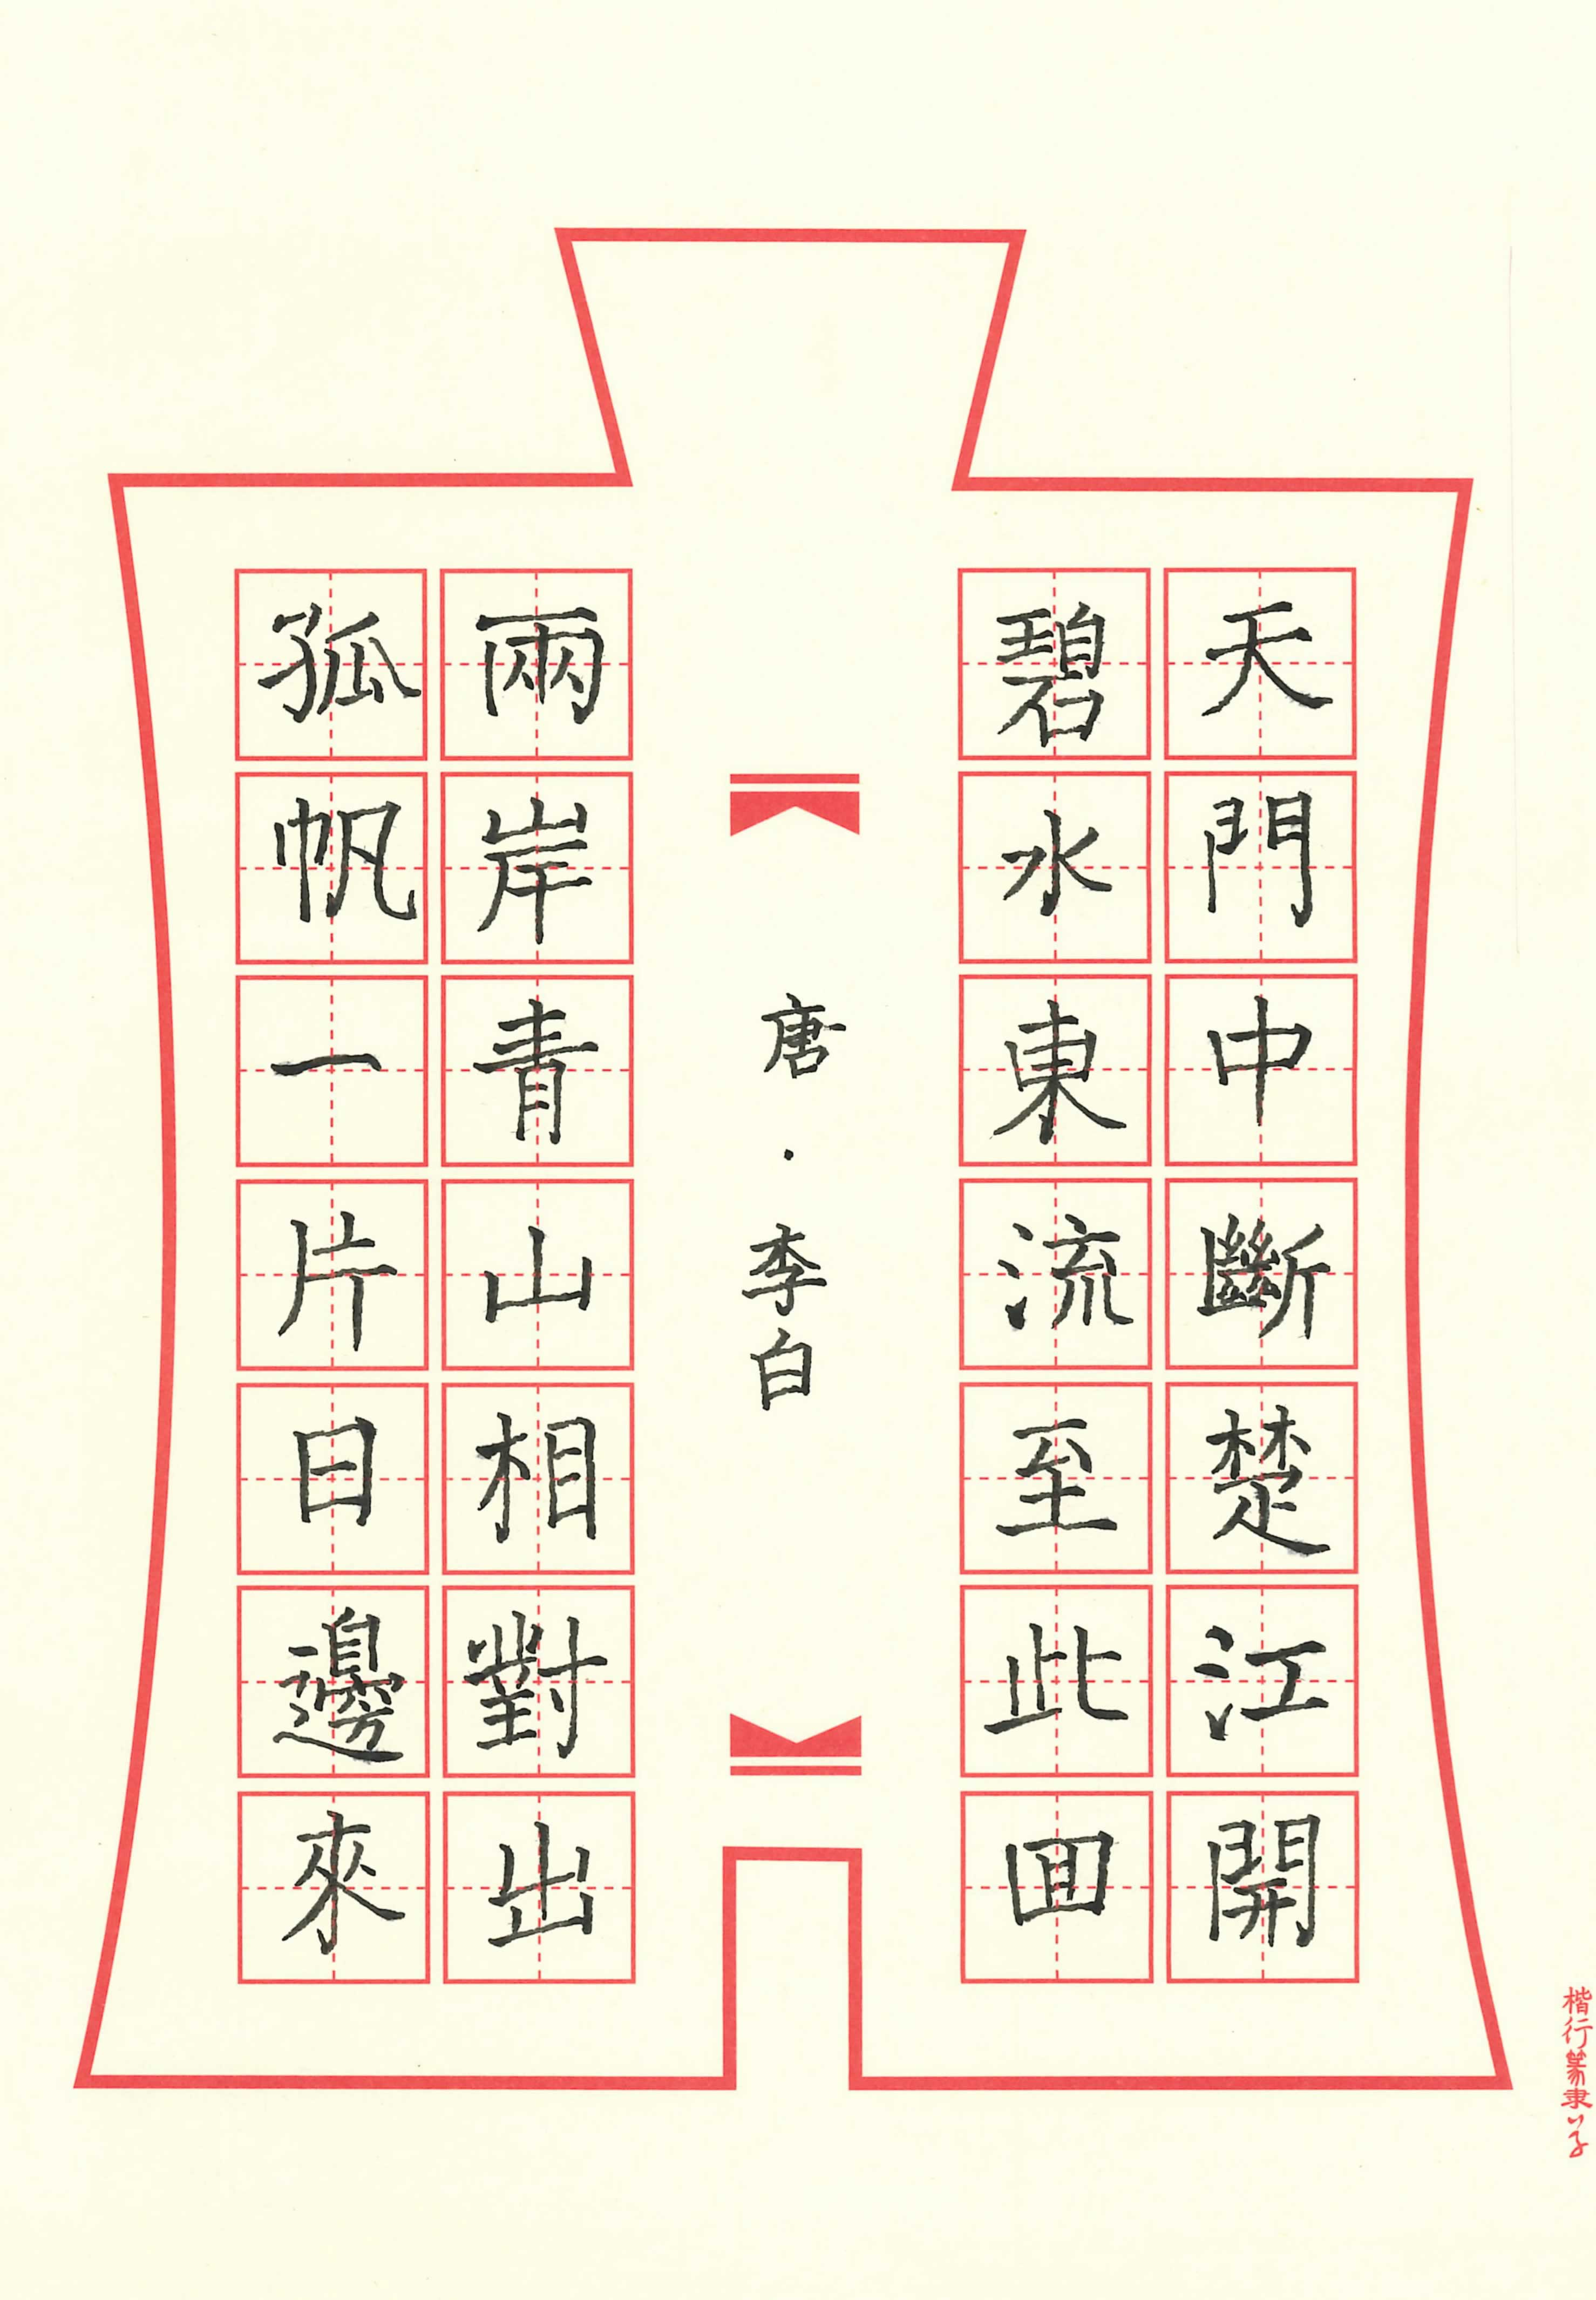 天門中斷楚江開
碧水東流至此回
唐·李白
兩岸青山相對出
孤帆一片日邊來
楷行篆隶草